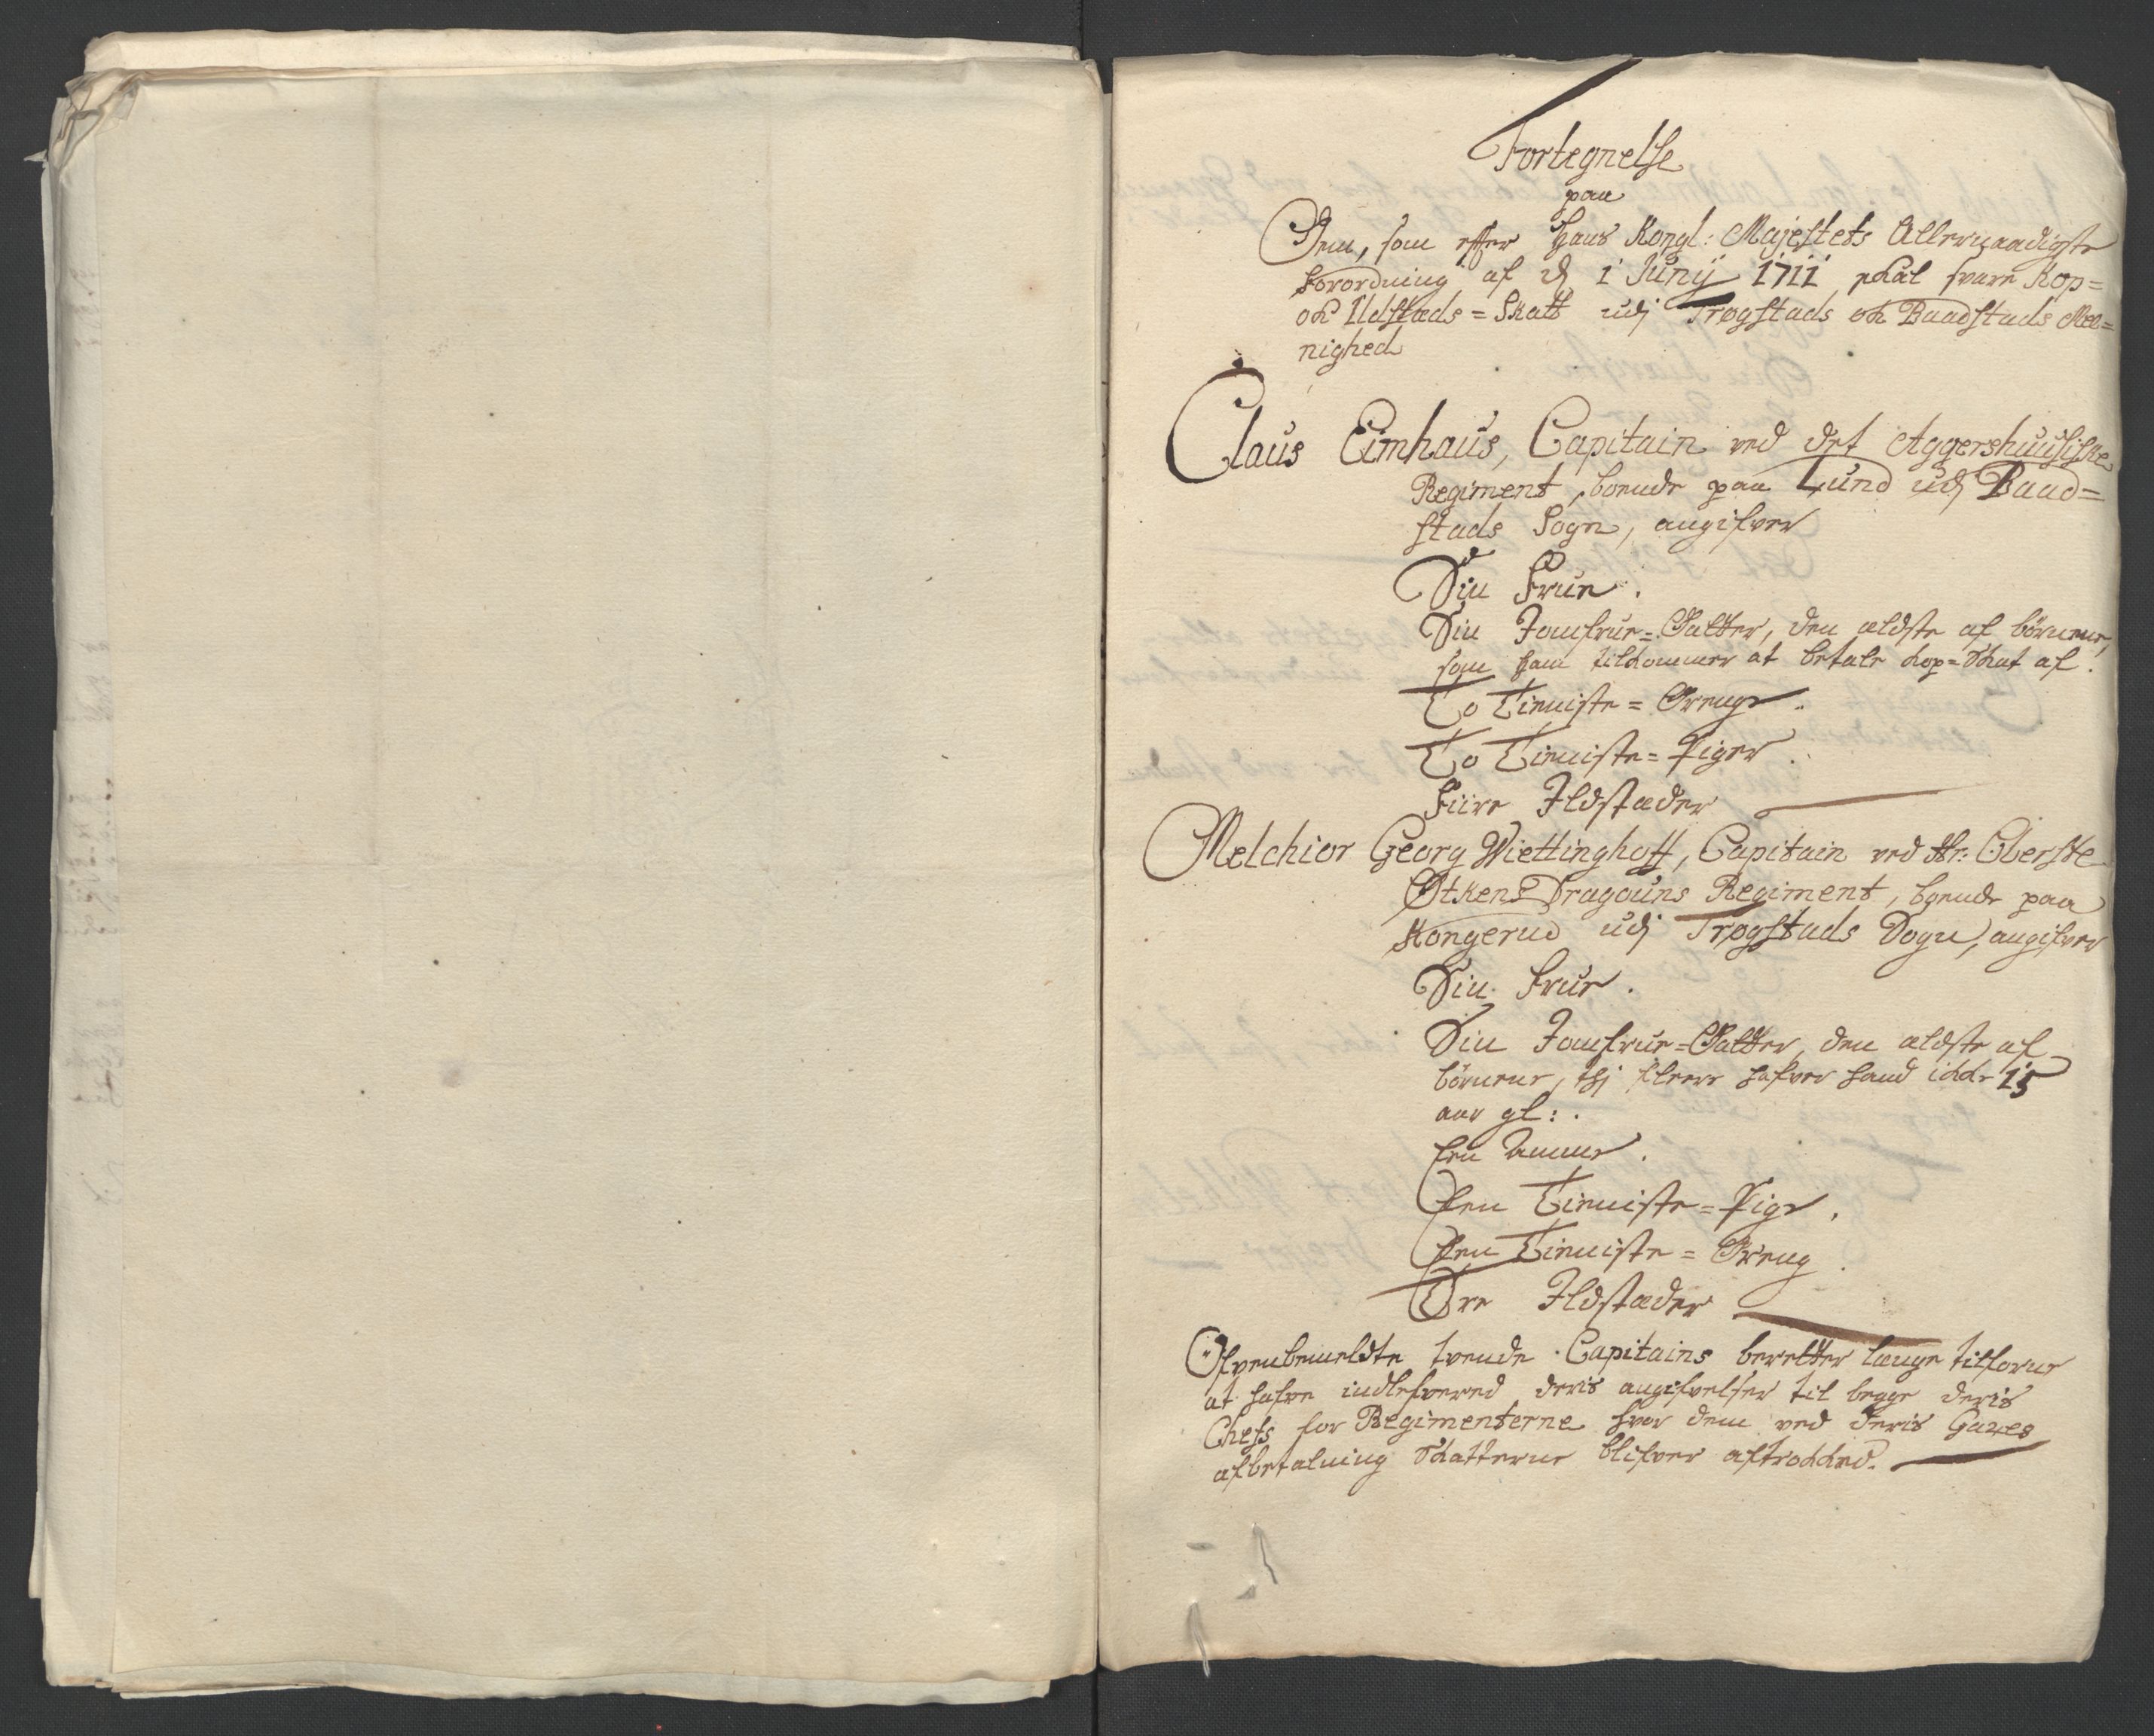 Fortegnelse
paa
Dem, som efter Hans Kongl: Majestets Allernaadigste
forordning af d 1 Junij 1711 skal svare Kop=
och Ildstæds=Skatt udj Trøgstads och Baadstads Mee=
nighed
Claus Eimhaus, Capitain ved det Aggershuusiske
Regiment, boende paa Lund udj Baad=
stads Sogn, angifver
Sin Frue.
Sin Jomfrue=Datter, den ældste af börnene,
som ham tilkommer at betale kop=Skat af.
To Tieniste=Drenge.
To Tieniste=Piger.
Fiire Ildstæder
Melchior Georg Wiettinghoff, Capitain ved Hr: Oberste
Øtkens Dragouns Regiment, boende paa
Kongerud udj Trøgstads Sogn, angifver
Sin Frue.
Sin Jomfrue=Datter, den ældste af
börnene, thj fleere hafver hand icke 15
aar gl:.
Een Amme.
Een Tieniste=Pige.
Een Tieniste=Dreng.
Tre Ildstæder
Ofvenbemeldte tvende Capitains beretter længe tilforne
at hafve indlefvered deris angifvelser til begge deris
Chefs for Regimenterne hvor dem ved deris Gages
afbetalning Skatterne blifver aftrokked.